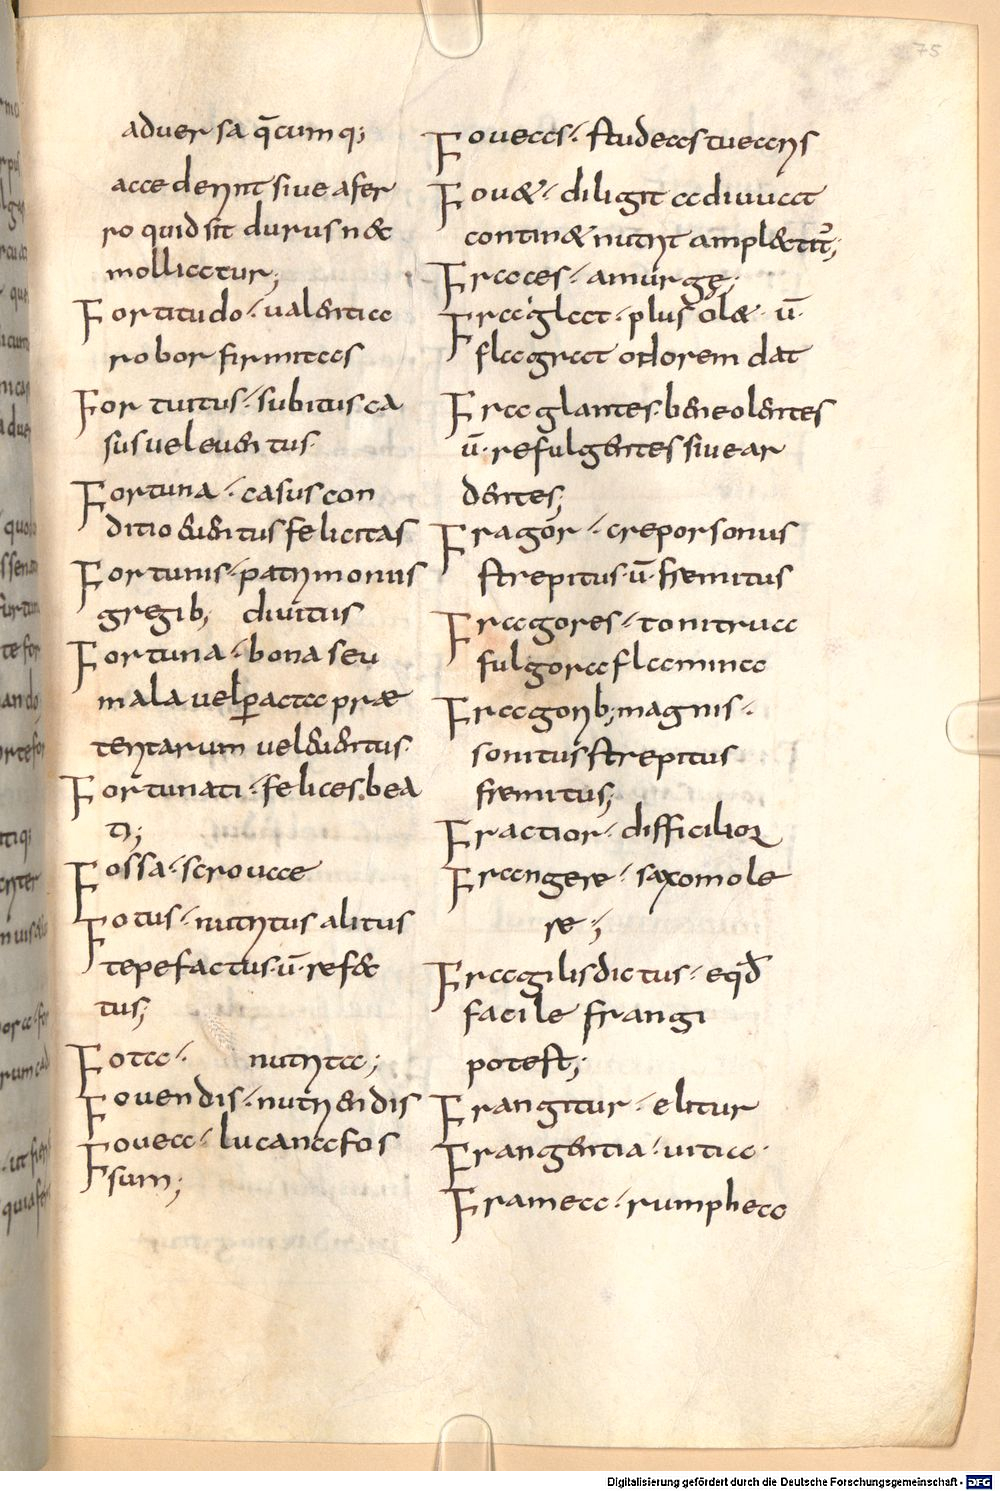 75
aduersa q̄cumq;
accederint siue a fer
ro quid sit durus n&
mollicatur;
Fortitudo · ualentia
robor firmitas
Fortuitus · subitus ca
sus uel euentus·
Fortuna · casus con
ditio euentus felicitas
Fortunis · patrimoniis
gregib; diuitiis
Fortuna · bona seu
mala uel ꝑacta præ
teritarum uel euentus·
Fortunati · felices bea
ti;
Fossa · scroua
Fotus · nutritus alitus
tepefactus · ū · refec
tus;
Fota · nutrita;
Fouendis · nutriendis
Fouea · lucana fos
sum;
Foueas · studeas tuearis
Fou& · diligit adiuuat
contin& nutrit ampl&titur;
Fraces · amurgę;
Fraglat · plus ol& · ū·
flagrat odorem dat
Fraglantes · bene olentes
ū · refulgentes siue ar
dentes;
Fragor · crepor sonus
strepitus · ū · fremitus
Fragores · tonitrua
fulgora flamina
Fragorib; magnis ·
sonitus strepitus
fremitus;
Fractior · difficilior
Frangere · saxo mole
re;
Fragilis dictus · eqd̄
facile frangi
potest;
Frangitur · elitur
Frangentia · uitia·
Framea · rumphea
Digitalisierung gefördert durch die Deutsche Forschungsgemeinschaft - DFG